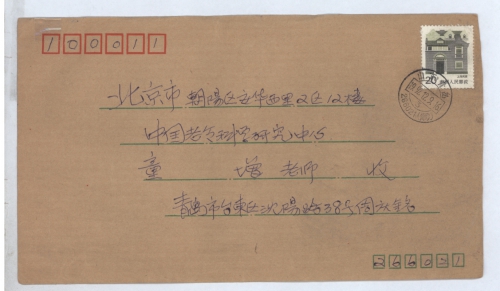 100011
20
北京市朝阳区安华西里2区12楼
中国老龄科学研究中心
童 增 老师 收
青岛市台东区沈阳路38号
266021